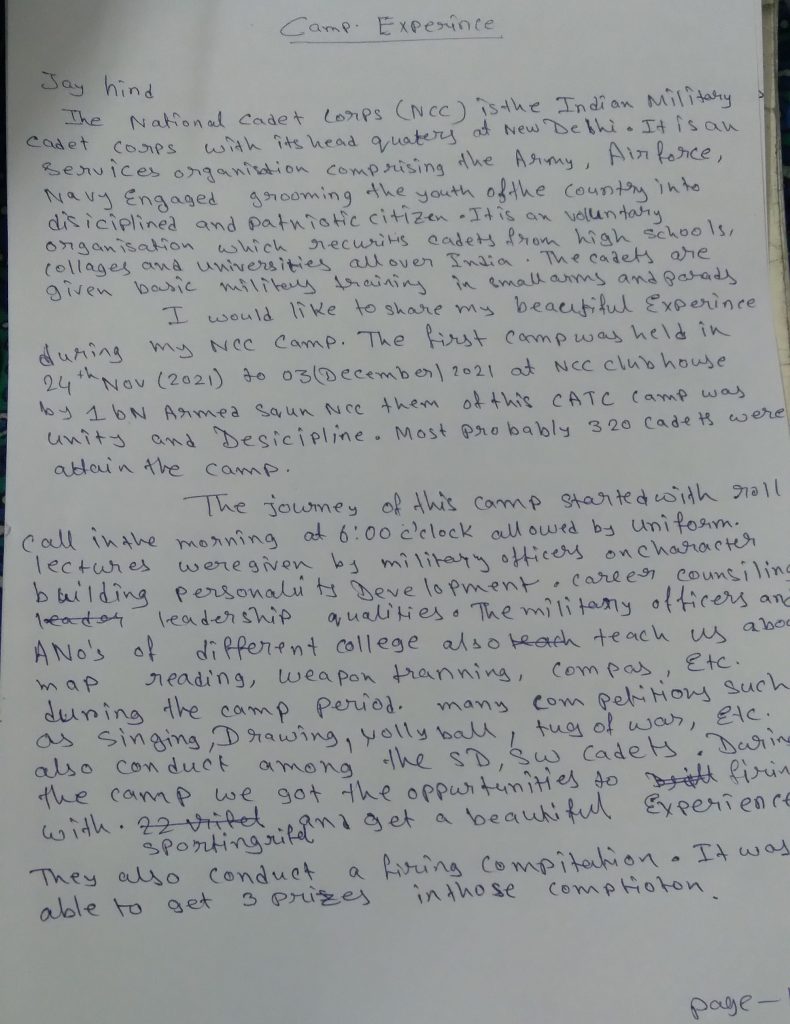 Camp. Experince
Jay hind
The National Cadet Corps (NCC) is the Indian Military
Cadet corps with its head quaters at New Delhi. It is an
Services organistion comprising the Army, Air force,
Navy Engaged grooming the youth of the country into
disiciplined and patriotic citizen. It is an volluntary
organisation which recurits cadets from high schools,
collages and universities all over India. The cadets are
given basic militery training in small arms and parads
I would like to share my beautiful Experince
during my NCC Camp. The first camp was held in
24th Nov (2021) to 03(December) 2021 at NCC club house
by 1 bN Armed Squn NCC them of this CATC Camp was
unity and Desicipline. Most probably 320 Cadets were
attain the camp.
The journey of this camp started with roll
call in the morning at 6:00 c'clock allowed by uniform.
lectures were given by military officers on character
building personality Development. career counsiling
leader leadership qualities. The military officers and
ANo's of different college also teach teach us abou
map reading, weapon tranning, compas, Etc.
during the camp period. many competitions such
as Singing, Drawing, vollyball, tug of war, Etc.
also conduct among the SD, SW cadets. Durin
the camp we got the oppurtunities to firin
with. 22 rifel and get a beautiful Experience
sportingrifel
They also conduct a firing compitation. It was
able to get 3 prizes in those comptioton.
page-1